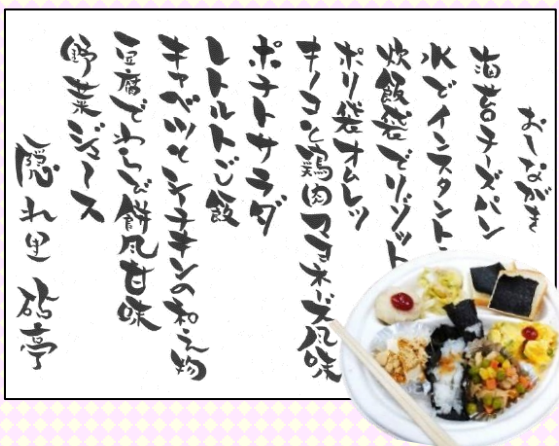 おしながき
海苔チーズパン
水でインスタント
炊飯袋でリゾット
ポリ袋オムレツ
キノコと鶏肉マヨネーズ風味
ポテトサラダ
レトルトご飯
キャベツとシーチキンの和え物
豆腐でわらび餅風甘味
野菜ジュース
隠れ里 砧亭